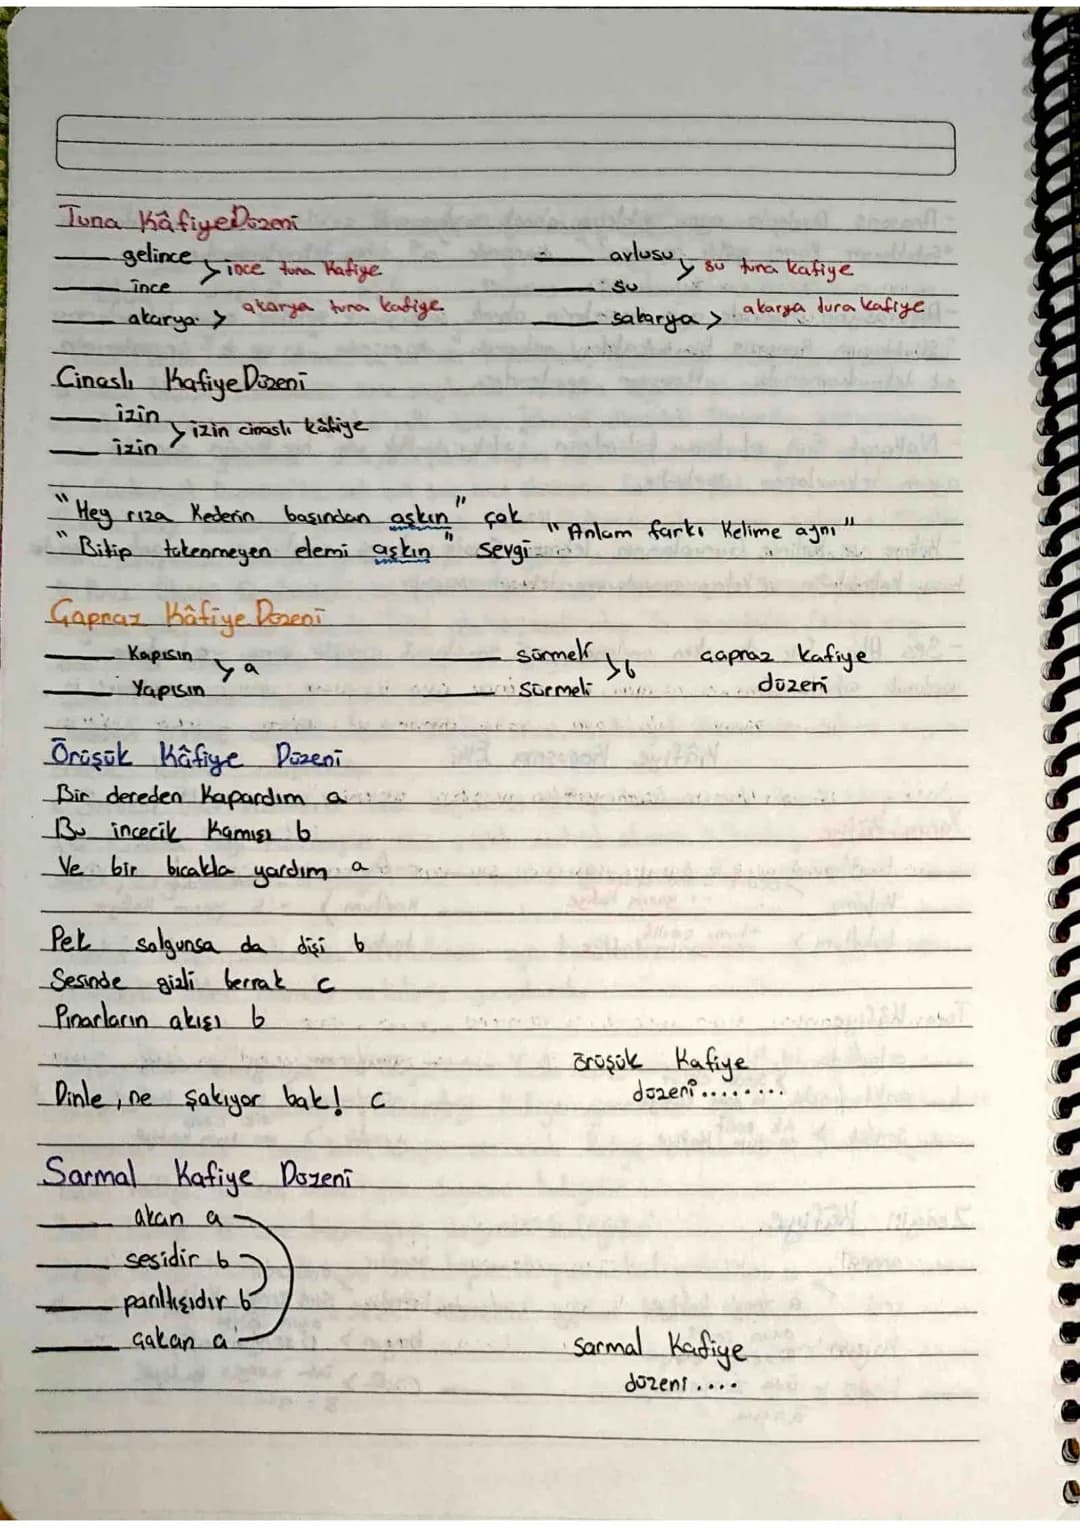 Tuna Kâfiye Düzeni
gelince
ince
ince tuna Kafiye
akarya
akarya tuna kafiye
avlusu
su
su tuna kafiye
sakarya
akarya tuna kafiye
Cinaslı Kafiye Düzeni
izin
izin
izin cinaslı kâfiye
"Hey rıza Kederin başından aşkın" çok
"Bitip tükenmeyen elemi aşkın" sevgi
"Anlam farkı Kelime aynı"
Çapraz Kâfiye Düzeni
Kapısın
Yapısın
a
sürmeli
sürmeli
b
çapraz kafiye
düzeni
Örüşük Kâfiye Düzeni
Bir dereden Kapardım a
Bu incecik Kamışı b
Ve bir bıcakla yardım a
Pek solgunsa da dişi b
Sesinde gizli berrak c
Pınarların akışı b
Dinle, ne şakıyor bak! c
örüşük Kafiye
düzeni........
Sarmal Kafiye Düzeni
akan a
sesidir b
parıltısıdır b
çakan a
sarmal Kafiye
düzeni....